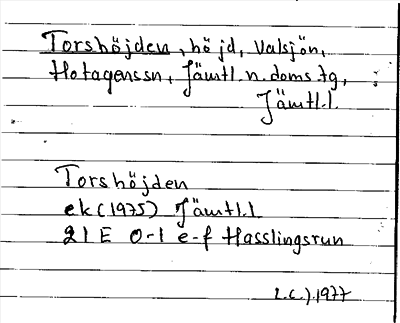 Torshöjden, höjd, Valsjön,
Hotagenssn, Jämtl.n.doms.tg,
Jämtl.l.
Torshöjden
ek (1975) Jämtl.l
21 E 0-1 e-f Hasslingsrun
1977